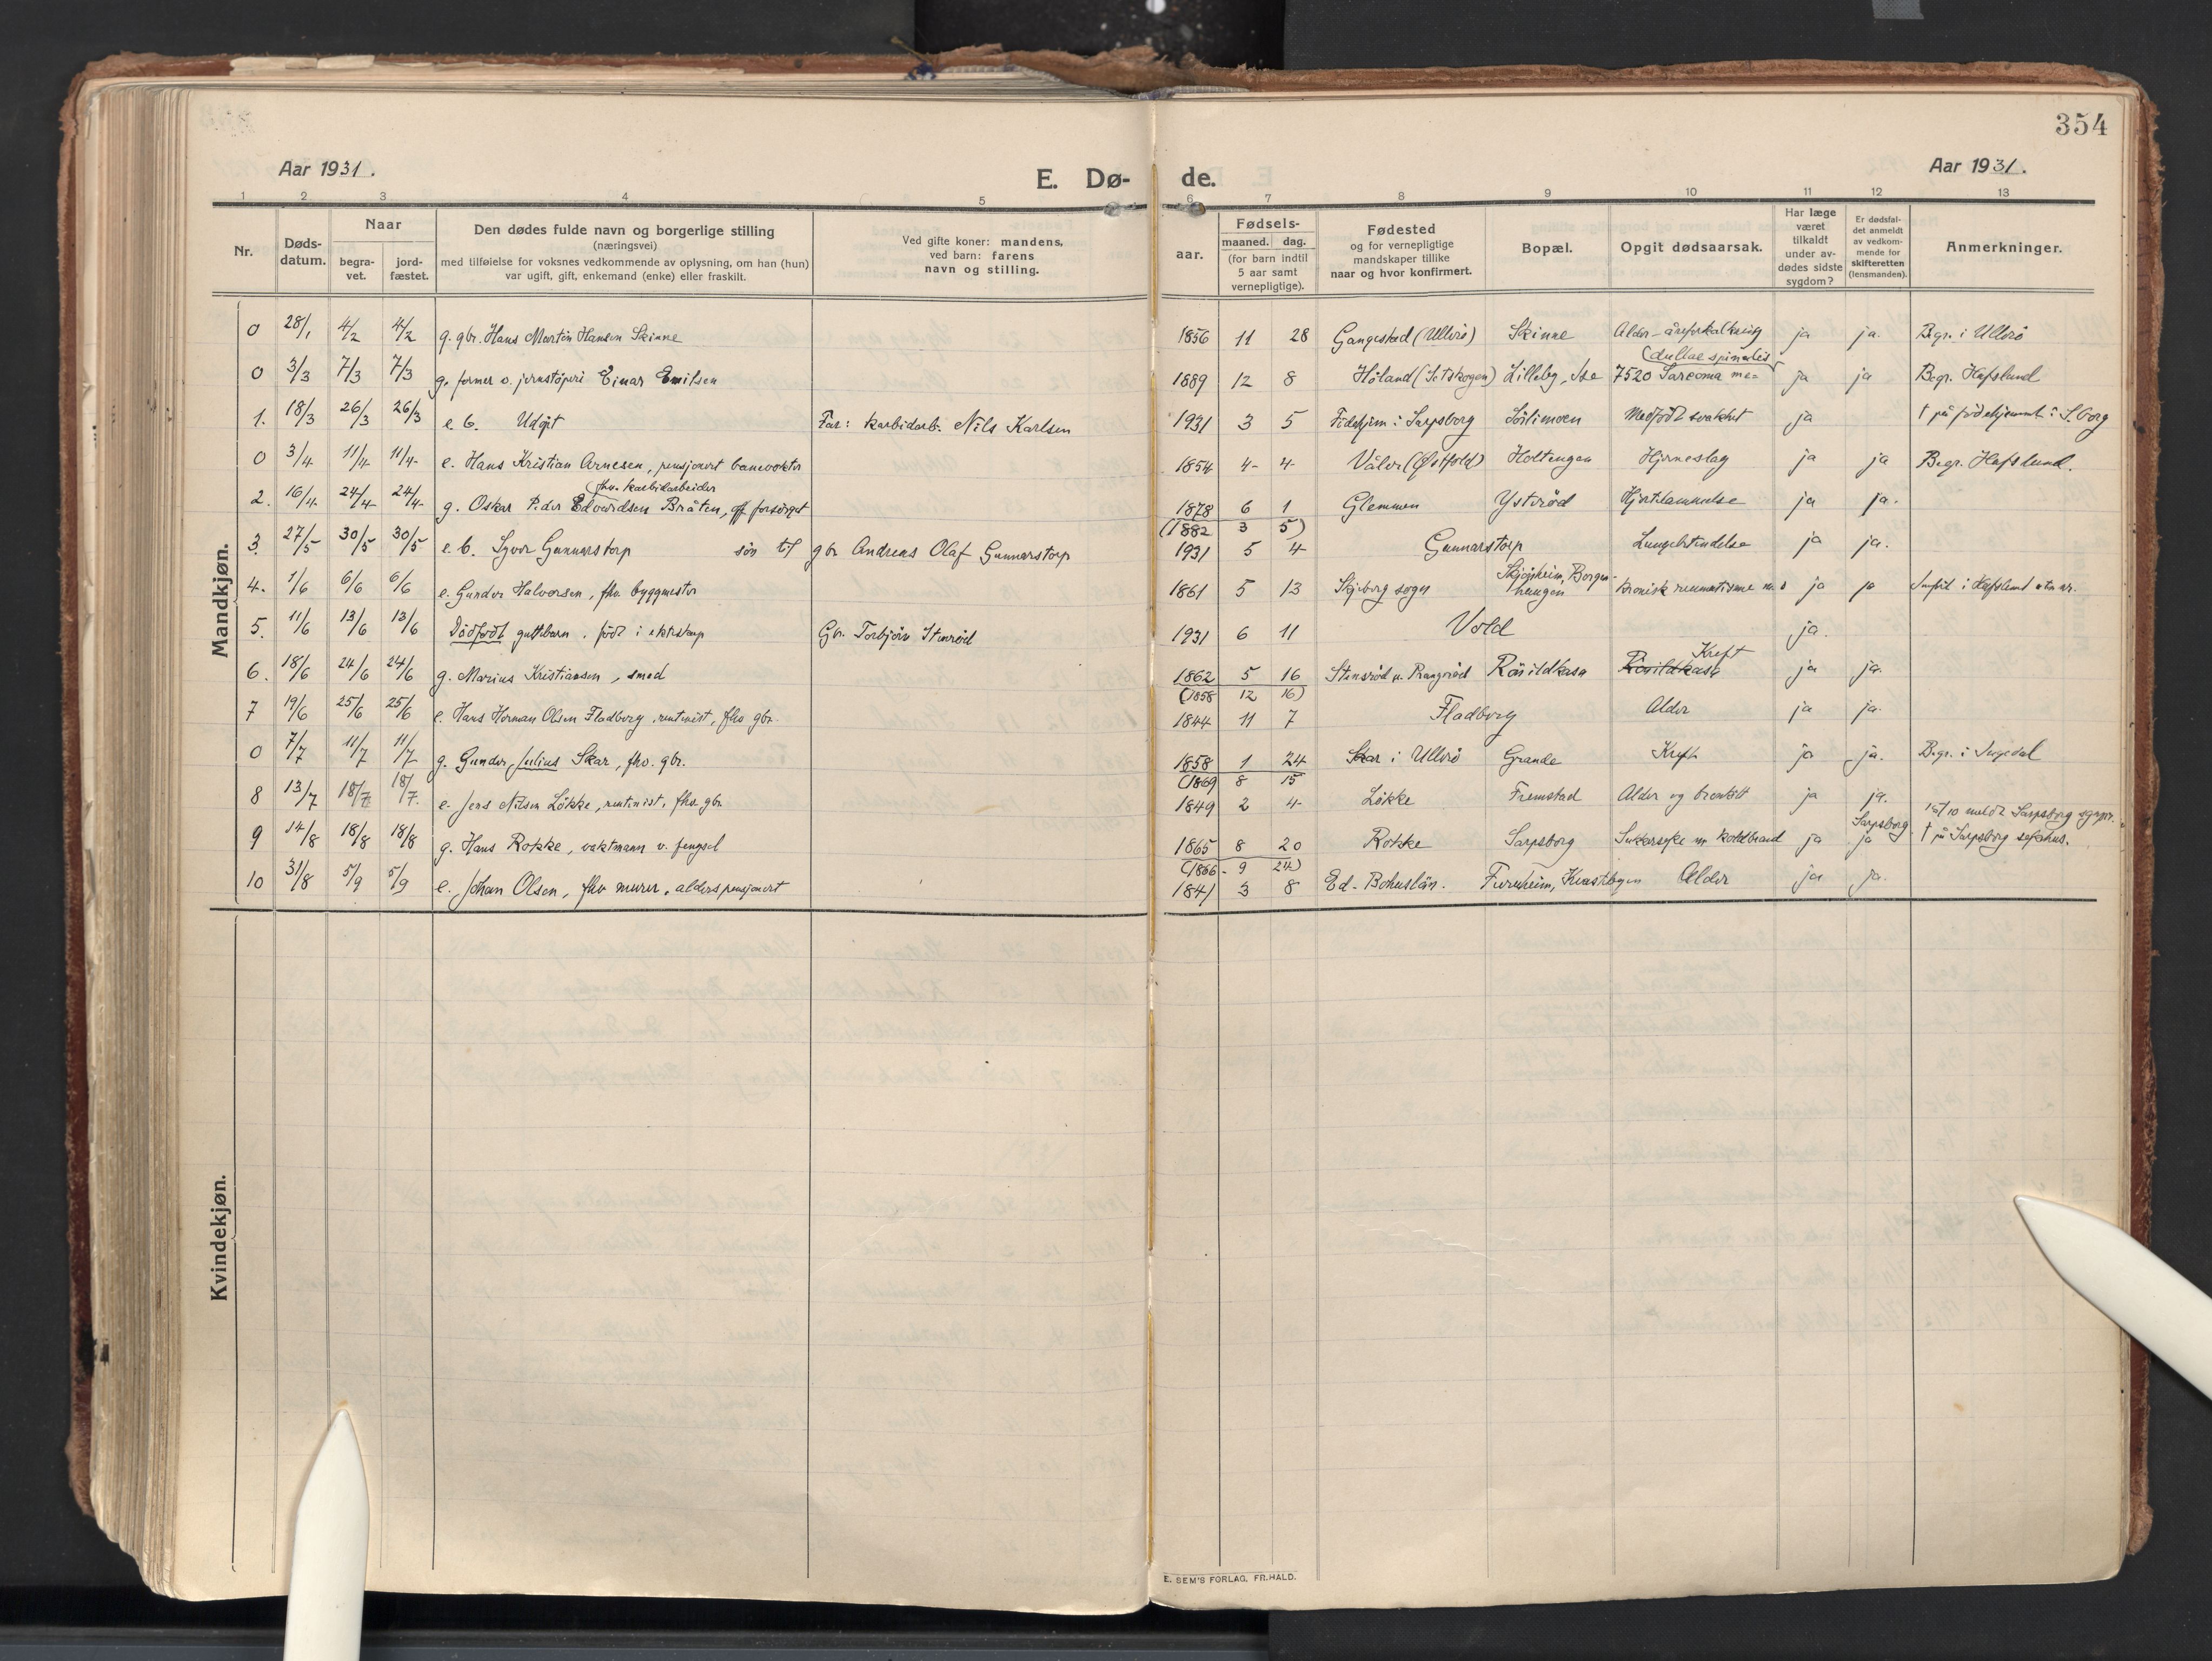 354
Aar 1931.
E. Dø- de.
Aar 1931.
1 2 3 4 5 6 7 8 9 10 11 12 13
Nr.
Døds-
datum.
Naar
begra-
vet.
jord-
fæstet.
Den dødes fulde navn og borgerlige stilling
(næringsvei)
med tilføielse for voksnes vedkommende av oplysning, om han (hun)
var ugift, gift, enkemand (enke) eller fraskilt.
Ved gifte koner: mandens,
ved barn: farens
navn og stilling.
aar.
Fødsels-
maaned. dag.
(for barn indtil
5 aar samt
vernepligtige).
Fødested
og for vernepligtige
mandskaper tillike
naar og hvor konfirmert.
Bopæl.
Opgit dødsaarsak.
Har læge
været
tilkaldt
under av-
dødes sidste
sygdom?
Er dødsfal-
det anmeldt
av vedkom-
mende for
skifteretten
(lensmanden).
Anmerkninger.
Mandkjøn.
0 28/1 4/2 4/2 g. gbr. Hans Martin Hansen Skinne 1856 11 28 Gangestad (Ullerö) Skinne Alder - åreforkalkning ja ja. Begr. i Ullerö
0 3/3 7/3 7/3 g. former v. jernstöperi Einar Emilsen 1889 12 8 Höland (Setskogen) Lilleby, Ise 7520 Sarcoma me=
(dullae spinalis ja ja Begr. Hafslund
1. 18/3 26/3 26/3 e. b. Udöpt Far: karbidarb. Nils Karlsen 1931 3 5 Födehjem i Sarpsborg Sölimoen Medfödt svakhet ja † på födehjemmet i S.borg
0 3/4 11/4 11/4 e. Hans Kristian Arnesen, pensjonert banevokter 1854 4 4 Våler (Östfold) Holtengen Hjerneslag ja ja Begr. Hafslund.
(fhv. karbidarbeider
2. 16/4 24/4 24/4 g. Oskar Peder Edvardsen Bråten, off forsörget 1878 6 1 Glemmen Ysteröd Hjertelammelse ja ja.
(1882 3 5)
3. 27/5 30/5 30/5 e. b. Syver Gunnarstorp sön til gbr Andreas Olaf Gunnarstorp 1931 5 4 Gunnarstorp Lungebetendelse ja ja.
4. 1/6 6/6 6/6 e. Gunder Halvorsen, fhv. byggmester 1861 5 13 Skjeberg sogn Borgen-
haugen kronisk reumatisme ja ja
5. 11/6 13/6 13/6 Dödfödt guttebarn, födt i ekteskap Gbr. Torbjörn Stenröd 1931 6 11 Vold ja.
6. 18/6 24/6 24/6 g. Marius Kristiansen, smed 1862 5 16 Röisildkasa Röisildkasa Kreft ja ja.
(1858 12 16)
7 19/6 25/6 25/6 e. Hans Herman Olsen Fladberg, rentenist, fhv gbr. 1844 11 7 Fladberg Alder ja ja.
0 7/7 11/7 11/7 g. Gunder Julius Skar, fhv. gbr. 1858 1 24 Skar i Ullerö Grande Kreft ja ja. Begr. i Ingedal
(1869 8 15
8 13/7 18/7 18/7. e. Jens Nilsen Løkke, rentenist, fhv gbr 1849 2 4 Løkke Fremstad Alder og bronkitt ja ja.
9 14/8 18/8 18/8 g. Hans Rokke, vaktmann v. fengsel 1865 8 20 Rokke Sarpsborg Sukkersyke m koldbrand ja Sarpsborg
ja meldt Sarpsborg sognepr.
† på Sarpsborg sykehus.
(1866 - 9 24)
10 31/8 5/9 5/9 e. Johan Olsen, fhv murer, alderspensjonert 1841 3 8 Ed - Bohuslän. Fureheim, Alder ja ja.
Kvindekjøn.
E. SEM'S FORLAG, FR.HALD.